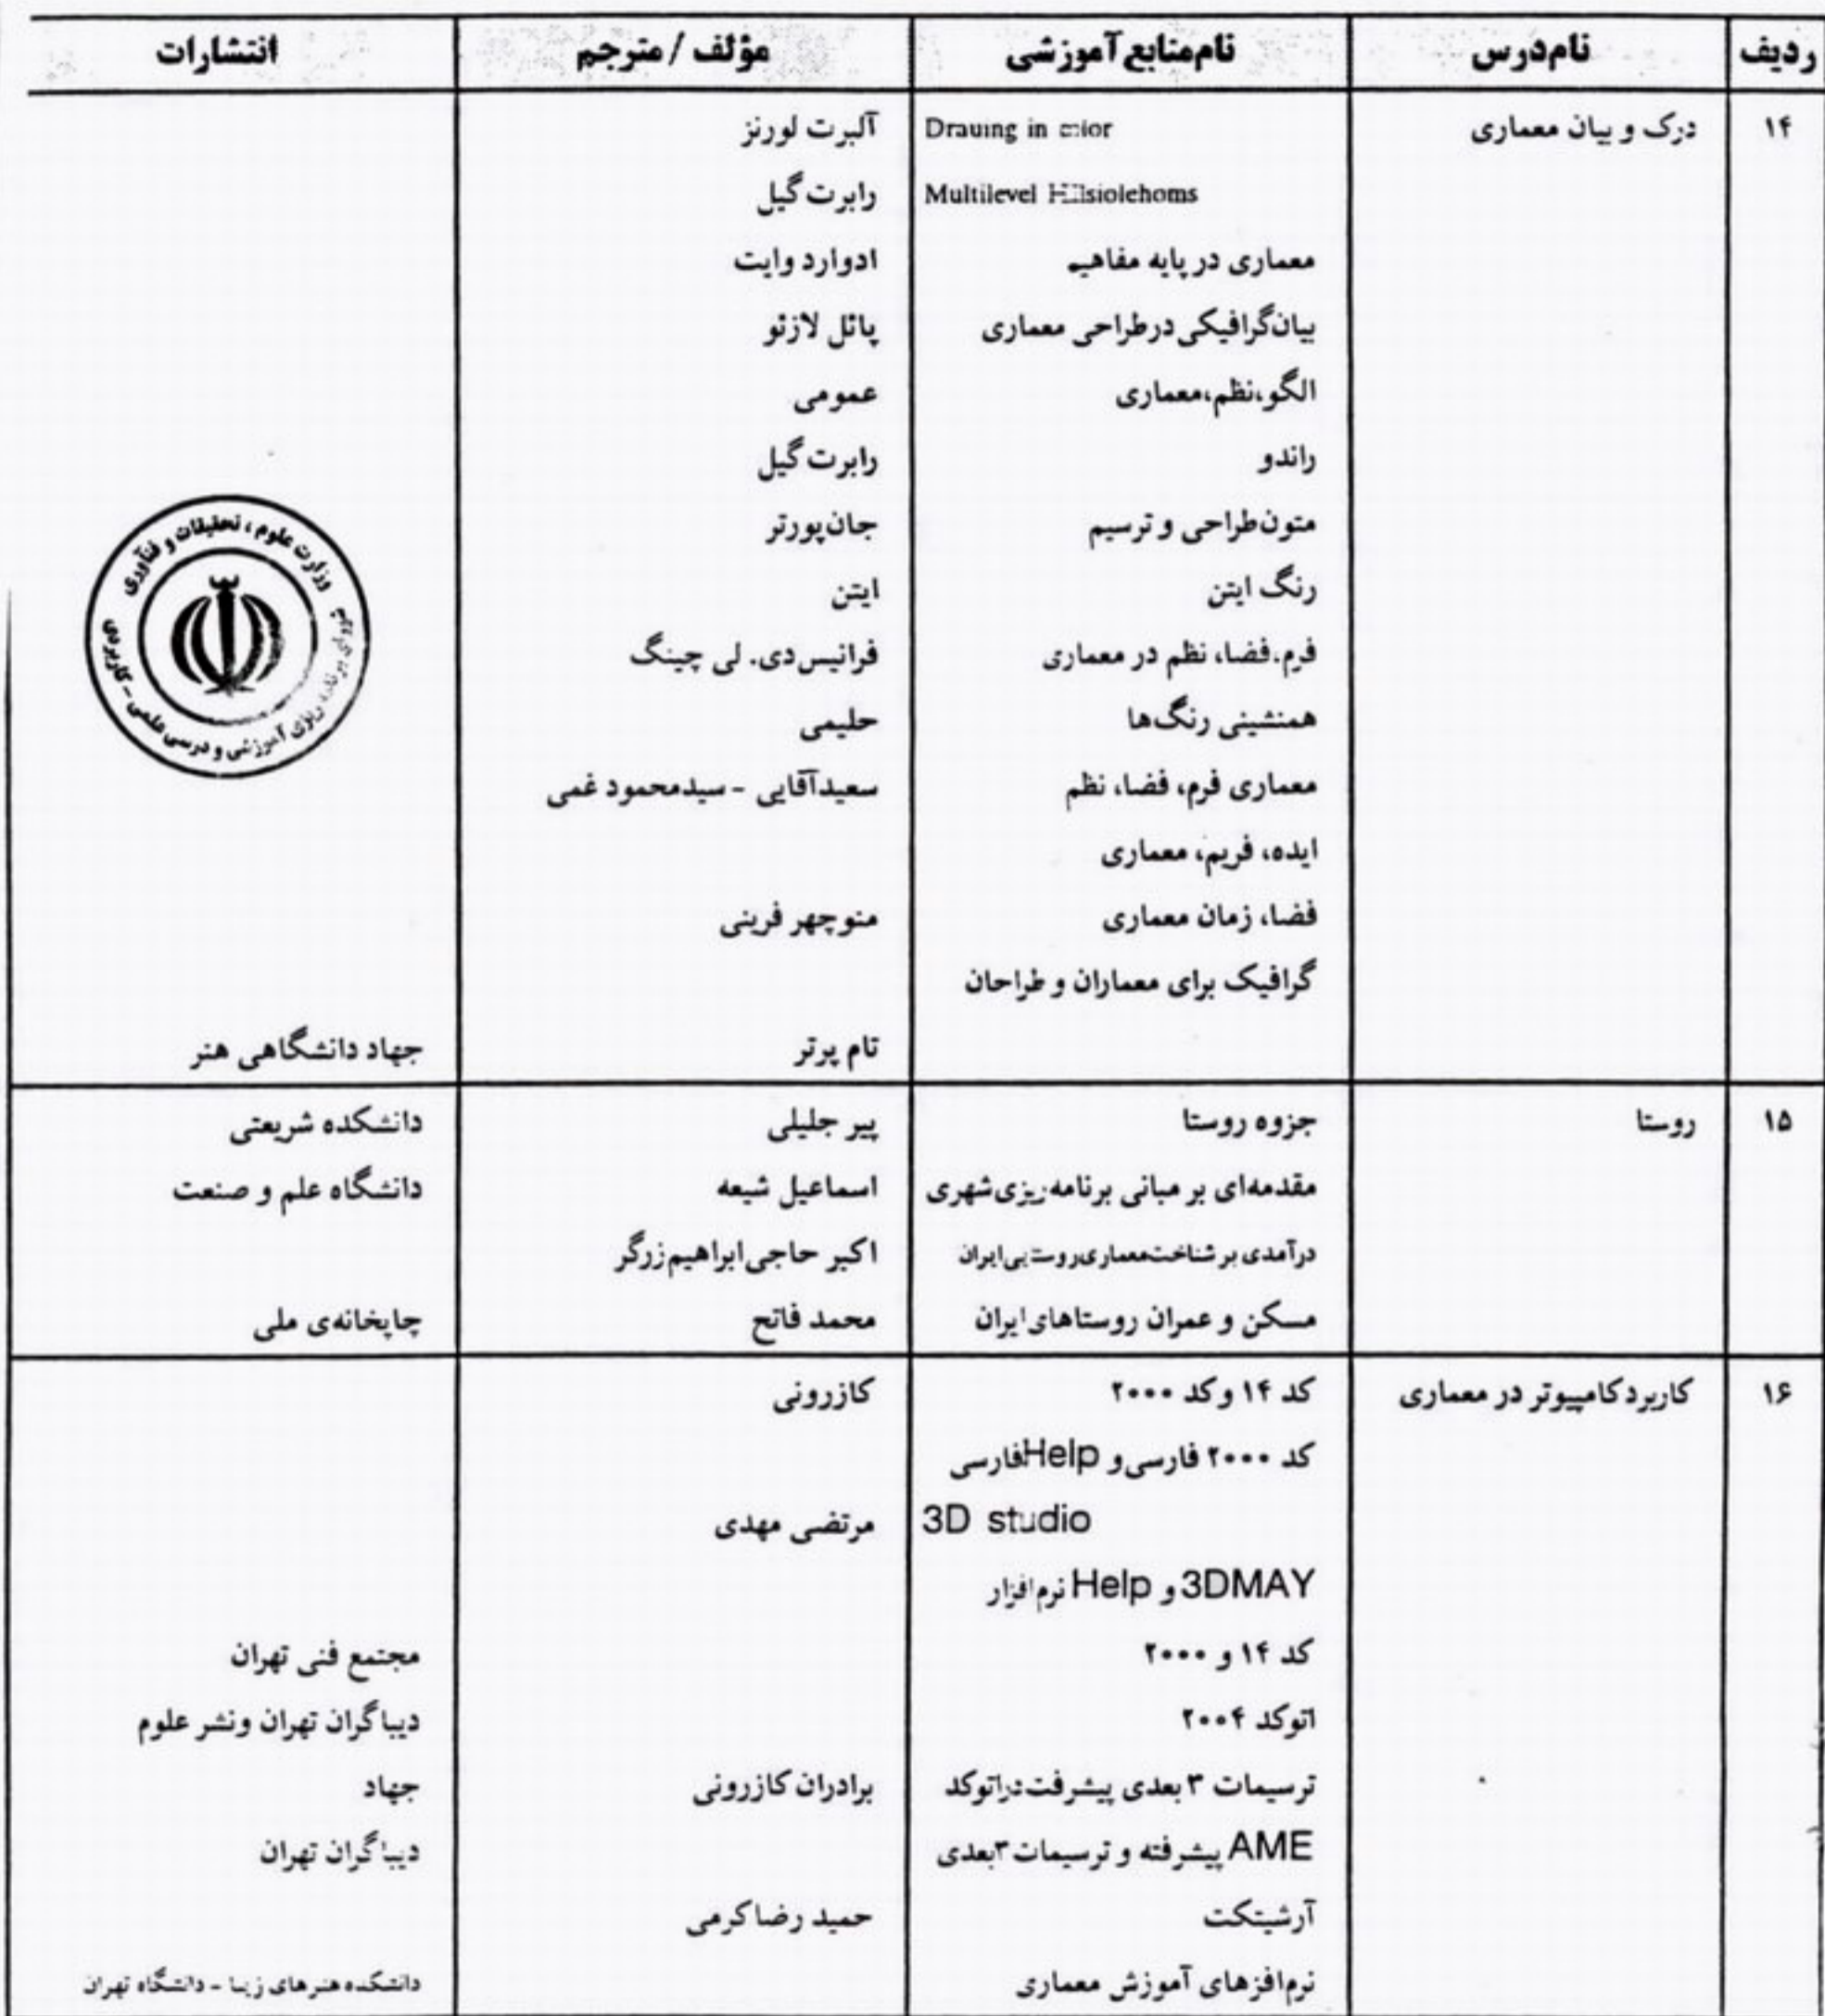 ردیف نام‌درس نام‌منابع آموزشی مؤلف / مترجم انتشارات
۱۴ درک و بیان معماری Drauing in آلبرت لورنز
Multilevel رابرت گیل
معماری در پایه مفاهیم ادوارد وایت
بیان‌گرافیکی درطراحی معماری پائل لازئو
الگو،نظم،معماری عمومی
راندو رابرت گیل
متون‌طراحی و ترسیم جان‌پورتر
رنگ ایتن ایتن
فرم،فضا، نظم در معماری فرانیس‌دی. لی چینگ
همنشینی رنگ‌ها حلیمی
معماری فرم، فضا، نظم سعیدآقایی - سیدمحمود غمی
ایده، فریم، معماری
فضا، زمان معماری منوچهر فرینی
گرافیک برای معماران و طراحان
تام پرتر جهاد دانشگاهی هنر
وزارت علوم ، تحقیقات و فنآوری
آموزشی و درسی علمی - کاربردی
۱۵ روستا جزوه روستا پیر جلیلی دانشکده شریعتی
مقدمه‌ای بر مبانی برنامه‌ریزی‌شهری اسماعیل شیعه دانشگاه علم و صنعت
درآمدی بر شناخت‌معماری‌روستایی‌ایران اکبر حاجی‌ابراهیم‌زرگر
مسکن و عمران روستاهای‌ایران محمد فاتح چاپخانه‌ی ملی
۱۶ کاربردکامپیوتر در معماری کد ۱۴ وکد ۲۰۰۰ کازرونی
کد ۲۰۰۰ فارسی‌و Helpفارسی
3D studio مرتضی مهدی
3DMAY و Help نرم‌افزار
کد ۱۴ و ۲۰۰۰ مجتمع فنی تهران
اتوکد ۲۰۰۴ دیباگران تهران ونشر علوم
ترسیمات ۳ بعدی پیشرفت‌دراتوکد برادران‌کازرونی جهاد
AME پیشرفته و ترسیمات ۳بعدی دیباگران تهران
آرشیتکت حمید رضاکرمی
نرم‌افزهای آموزش معماری دانشکده هنرهای زیبا - دانشگاه تهران